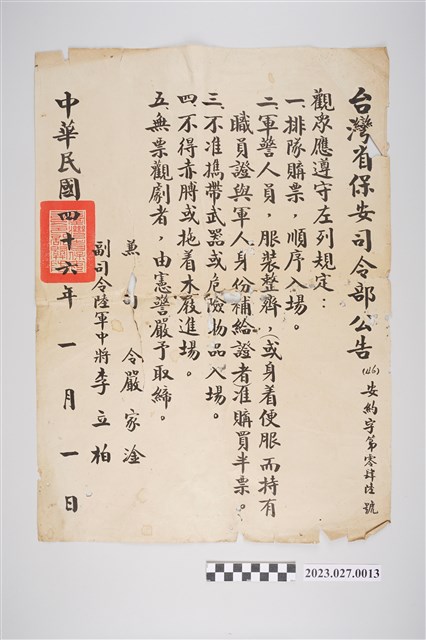 台灣省保安司令部公告(46)安約字第零肆陸號
觀衆應遵守左列規定：
一、排隊購票，順序入場。
二、軍警人員，服裝整齊，(或身着便服而持有
職員證與軍人身份補給證者准購買半票。
三、不准携帶武器或危險物品入場。
四、不得赤膊或拖着木屐進場。
五、無票觀劇者，由憲警嚴予取締。
兼司令嚴家淦
副司令陸軍中將李立柏
中華民國四十六年一月一日
2023.027.0013